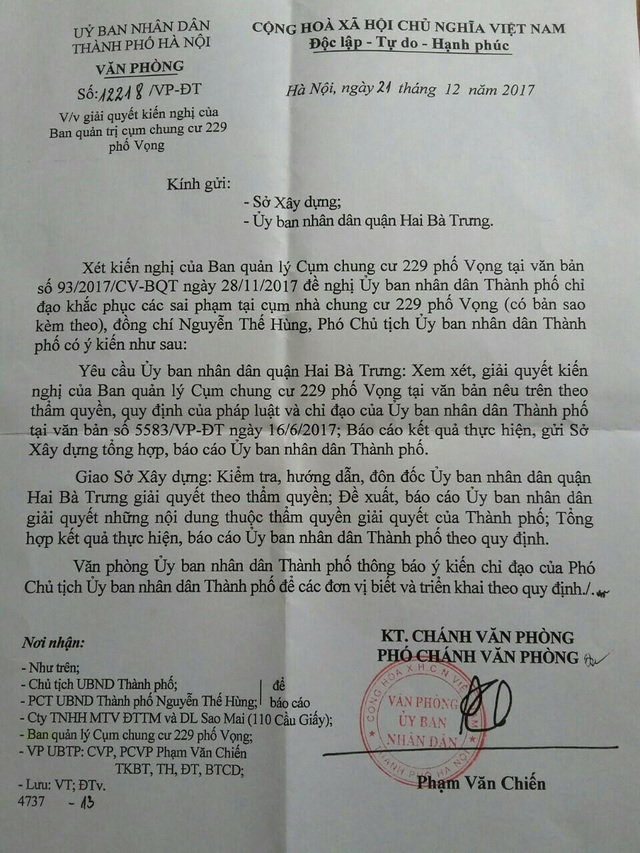 UỶ BAN NHÂN DÂN
THÀNH PHỐ HÀ NỘI
VĂN PHÒNG
Số:12218/VP-ĐT
V/v giải quyết kiến nghị của
Ban quản trị cụm chung cư 229
phố Vọng
CỘNG HOÀ XÃ HỘI CHỦ NGHĨA VIỆT NAM
Độc lập - Tự do - Hạnh phúc
Hà Nội, ngày 21 tháng 12 năm 2017
Kính gửi:
- Sở Xây dựng;
- Ủy ban nhân dân quận Hai Bà Trưng.
Xét kiến nghị của Ban quản lý Cụm chung cư 229 phố Vọng tại văn bản
số 93/2017/CV-BQT ngày 28/11/2017 đề nghị Ủy ban nhân dân Thành phố chỉ
đạo khắc phục các sai phạm tại cụm nhà chung cư 229 phố Vọng (có bản sao
kèm theo), đồng chí Nguyễn Thế Hùng, Phó Chủ tịch Ủy ban nhân dân Thành
phố có ý kiến như sau:
Yêu cầu Ủy ban nhân dân quận Hai Bà Trưng: Xem xét, giải quyết kiến
nghị của Ban quản lý Cụm chung cư 229 phố Vọng tại văn bản nêu trên theo
thẩm quyền, quy định của pháp luật và chỉ đạo của Ủy ban nhân dân Thành phố
tại văn bản số 5583/VP-ĐT ngày 16/6/2017; Báo cáo kết quả thực hiện, gửi Sở
Xây dựng tổng hợp, báo cáo Ủy ban nhân dân Thành phố.
Giao Sở Xây dựng: Kiểm tra, hướng dẫn, đôn đốc Ủy ban nhân dân quận
Hai Bà Trưng giải quyết theo thẩm quyền; Đề xuất, báo cáo Ủy ban nhân dân
giải quyết những nội dung thuộc thẩm quyền giải quyết của Thành phố; Tổng
hợp kết quả thực hiện, báo cáo Ủy ban nhân dân Thành phố theo quy định.
Văn phòng Ủy ban nhân dân Thành phố thông báo ý kiến chỉ đạo của Phó
Chủ tịch Ủy ban nhân dân Thành phố để các đơn vị biết và triển khai theo quy định./.
Nơi nhận:
- Như trên;
- Chủ tịch UBND Thành phố;
- PCT UBND Thành phố Nguyễn Thế Hùng;
để
báo cáo
- Cty TNHH MTV ĐTTM và DL Sao Mai (110 Cầu Giấy);
- Ban quản lý Cụm chung cư 229 phố Vọng;
- VP UBTP: CVP, PCVP Phạm Văn Chiến
TKBT, TH, ĐT, BTCD;
- Lưu: VT; ĐTv.
4737 - 13
KT. CHÁNH VĂN PHÒNG
PHÓ CHÁNH VĂN PHÒNG
CỘNG HOÀ X.H.C.N VIỆT NAM
VĂN PHÒNG
ỦY BAN
NHÂN DÂN
THÀNH PHỐ HÀ NỘI
Phạm Văn Chiến